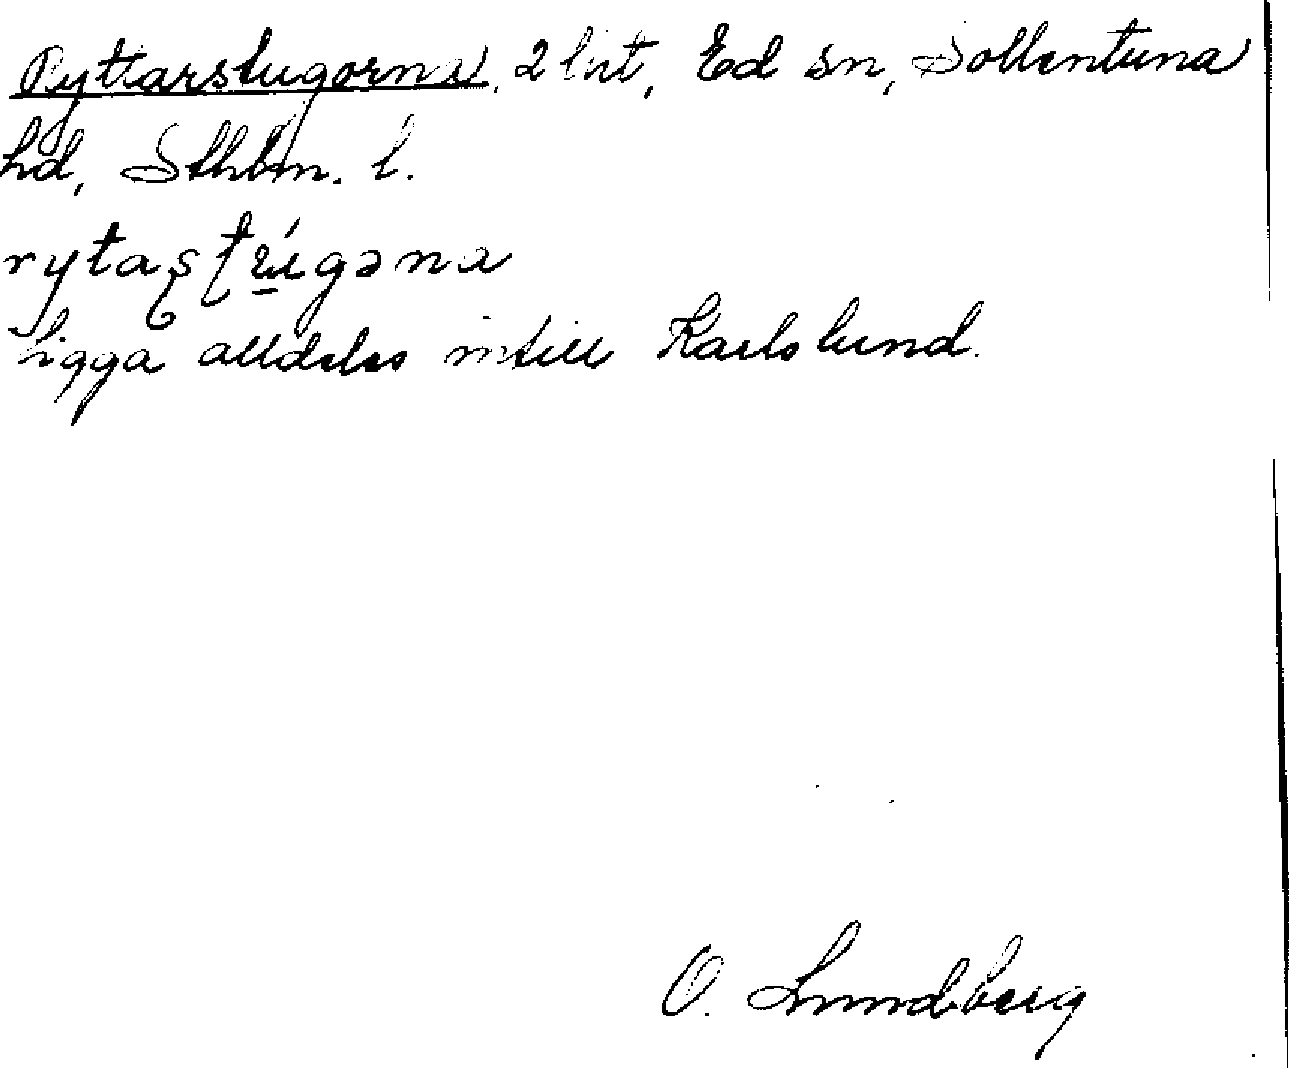 Ryttarstugorna, 2 lht, Ed sn, Sollentuna
hd, Sthlm. l.
rytaʂʈúgəna
Ligga alldeles intill Karlslund.
O. Lundberg